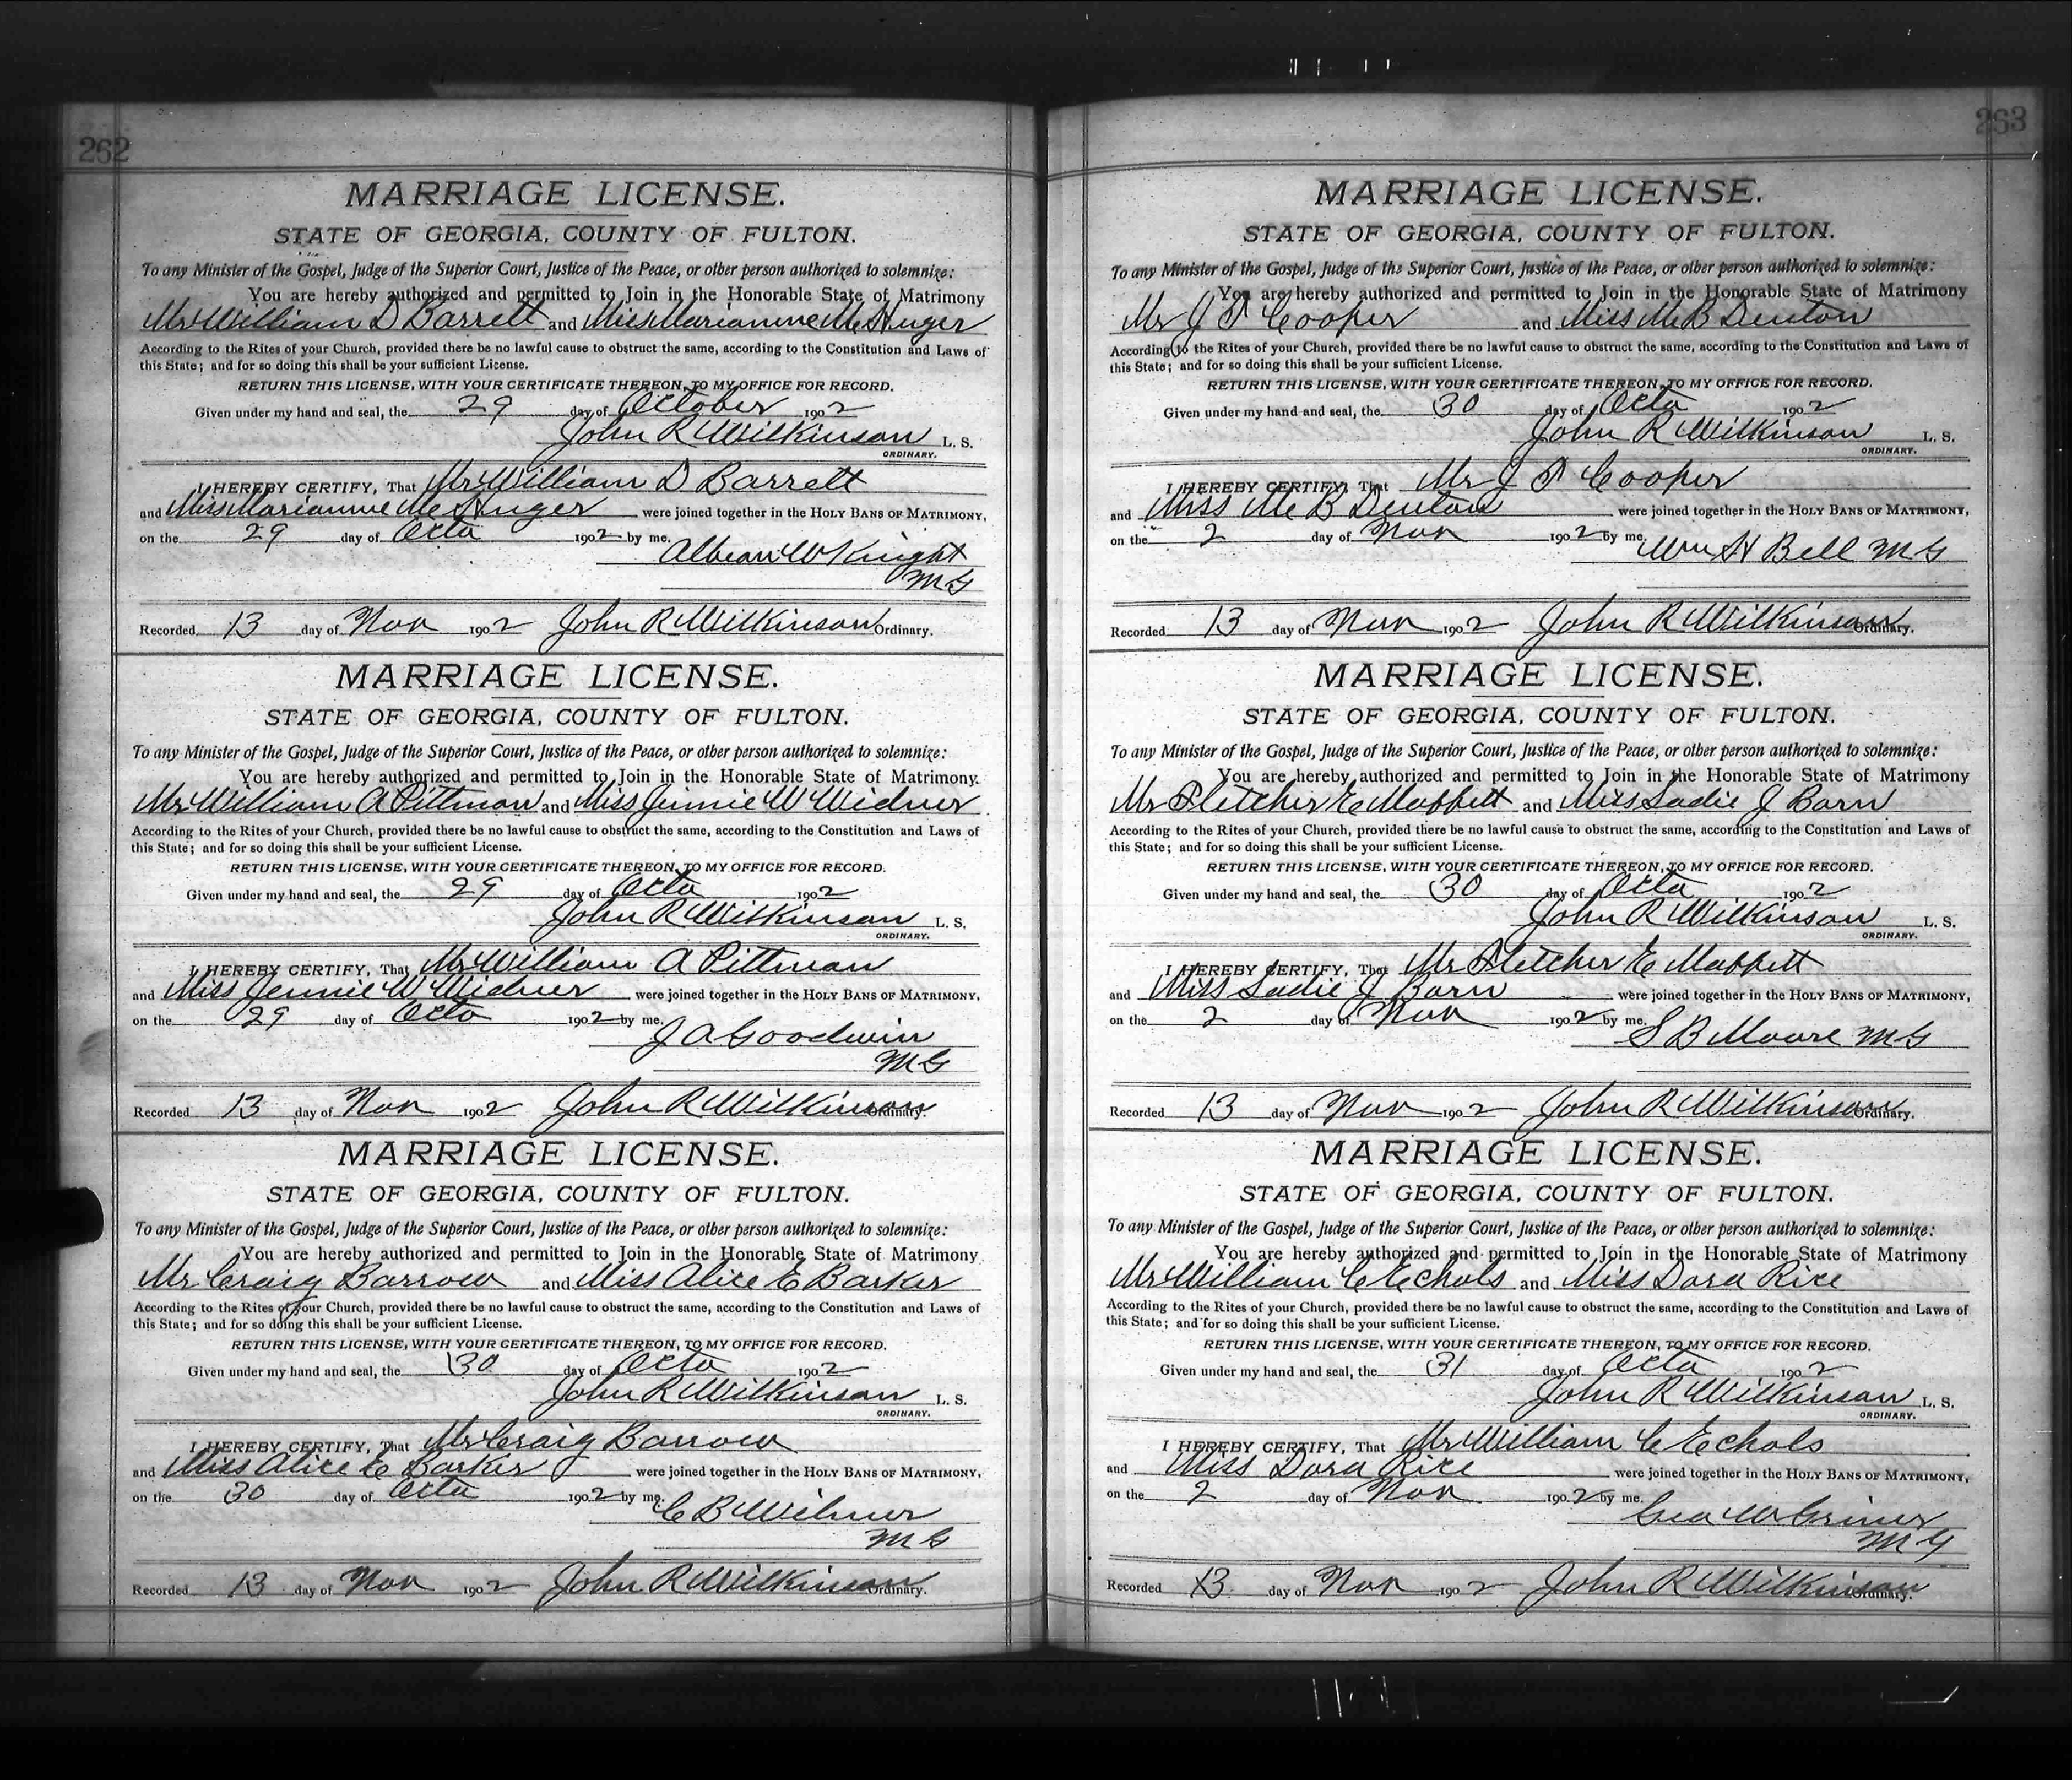 262
MARRIAGE LICENSE.
STATE OF GEORGIA, COUNTY OF FULTON.
To any Minister of the Gospel, Judge of the Superior Court, Justice of the Peace, or other person authorized to solemnize:
You are hereby authorized and permitted to Join in the Honorable State of Matrimony
Mr William D Barrett and Miss Mariamne Me Huger
According to the Rites of your Church, provided there be no lawful cause to obstruct the same, according to the Constitution and Laws of
this State; and for so doing this shall be your sufficient License.
RETURN THIS LICENSE, WITH YOUR CERTIFICATE THEREON, TO MY OFFICE FOR RECORD.
Given under my hand and seal, the 29 day of October 1902
John R Wilkinson L. S.
ORDINARY.
I HEREBY CERTIFY, That Mr William D Barrett
and Miss Mariamne Me Huger were joined together in the HOLY BANS OF MATRIMONY,
on the 29 day of Octo 1902 by me.
Albion W Knight
M G
Recorded 13 day of Nov 1902 John R Wilkinson Ordinary.
MARRIAGE LICENSE.
STATE OF GEORGIA, COUNTY OF FULTON.
To any Minister of the Gospel, Judge of the Superior Court, Justice of the Peace, or other person authorized to solemnize:
You are hereby authorized and permitted to Join in the Honorable State of Matrimony.
Mr William A Pittman and Miss Jinnie W Widner
According to the Rites of your Church, provided there be no lawful cause to obstruct the same, according to the Constitution and Laws of
this State; and for so doing this shall be your sufficient License.
RETURN THIS LICENSE, WITH YOUR CERTIFICATE THEREON, TO MY OFFICE FOR RECORD.
Given under my hand and seal, the 29 day of Octo 1902
John R Wilkinson L. S.
ORDINARY.
I HEREBY CERTIFY, That Mr William A Pittman
and Miss Jennie W Widner were joined together in the HOLY BANS OF MATRIMONY,
on the 29 day of Octo 1902 by me.
J A Goodwin
M G
Recorded 13 day of Nov 1902 John R Wilkinson Ordinary.
MARRIAGE LICENSE.
STATE OF GEORGIA, COUNTY OF FULTON.
To any Minister of the Gospel, Judge of the Superior Court, Justice of the Peace, or other person authorized to solemnize:
You are hereby authorized and permitted to Join in the Honorable State of Matrimony
Mr Craig Barrow and Miss Alice E Barker
According to the Rites of your Church, provided there be no lawful cause to obstruct the same, according to the Constitution and Laws of
this State; and for so doing this shall be your sufficient License.
RETURN THIS LICENSE, WITH YOUR CERTIFICATE THEREON, TO MY OFFICE FOR RECORD.
Given under my hand and seal, the 30 day of Octo 1902
John R Wilkinson L. S.
ORDINARY.
I HEREBY CERTIFY, That Mr Craig Barrow
and Miss Alice E Barker were joined together in the HOLY BANS OF MATRIMONY,
on the 30 day of Octo 1902 by me.
C B Wilmer
M G
Recorded 13 day of Nov 1902 John R Wilkinson Ordinary.
263
MARRIAGE LICENSE.
STATE OF GEORGIA, COUNTY OF FULTON.
To any Minister of the Gospel, Judge of the Superior Court, Justice of the Peace, or other person authorized to solemnize:
You are hereby authorized and permitted to Join in the Honorable State of Matrimony
Mr J T Cooper and Miss M B Denton
According to the Rites of your Church, provided there be no lawful cause to obstruct the same, according to the Constitution and Laws of
this State; and for so doing this shall be your sufficient License.
RETURN THIS LICENSE, WITH YOUR CERTIFICATE THEREON, TO MY OFFICE FOR RECORD.
Given under my hand and seal, the 30 day of Octo 1902
John R Wilkinson L. S.
ORDINARY.
I HEREBY CERTIFY, That Mr J T Cooper
and Miss M B Denton were joined together in the HOLY BANS OF MATRIMONY,
on the 2 day of Nov 1902 by me
Wm H Bell M G
Recorded 13 day of Nov 1902 John R Wilkinson Ordinary.
MARRIAGE LICENSE.
STATE OF GEORGIA, COUNTY OF FULTON.
To any Minister of the Gospel, Judge of the Superior Court, Justice of the Peace, or other person authorized to solemnize:
You are hereby authorized and permitted to Join in the Honorable State of Matrimony
Mr Fletcher E Maffett and Miss Sadie J Barn
According to the Rites of your Church, provided there be no lawful cause to obstruct the same, according to the Constitution and Laws of
this State; and for so doing this shall be your sufficient License.
RETURN THIS LICENSE, WITH YOUR CERTIFICATE THEREON, TO MY OFFICE FOR RECORD.
Given under my hand and seal, the 30 day of Octo 1902
John R Wilkinson L. S.
ORDINARY.
I HEREBY CERTIFY, That Mr Fletcher E Maffett
and Miss Sadie J Barn were joined together in the HOLY BANS OF MATRIMONY,
on the 2 day of Nov 1902 by me.
S B Moore M G
Recorded 13 day of Nov 1902 John R Wilkinson Ordinary.
MARRIAGE LICENSE.
STATE OF GEORGIA, COUNTY OF FULTON.
To any Minister of the Gospel, Judge of the Superior Court, Justice of the Peace, or other person authorized to solemnize:
You are hereby authorized and permitted to Join in the Honorable State of Matrimony
Mr William C Echols and Miss Dora Rice
According to the Rites of your Church, provided there be no lawful cause to obstruct the same, according to the Constitution and Laws of
this State; and for so doing this shall be your sufficient License.
RETURN THIS LICENSE, WITH YOUR CERTIFICATE THEREON, TO MY OFFICE FOR RECORD.
Given under my hand and seal, the 31 day of Octo 1902
John R Wilkinson L. S.
ORDINARY.
I HEREBY CERTIFY, That Mr William C Echols
and Miss Dora Rice were joined together in the HOLY BANS OF MATRIMONY,
on the 2 day of Nov 1902 by me.
Geo W Griner
M G
Recorded 13 day of Nov 1902 John R Wilkinson Ordinary.